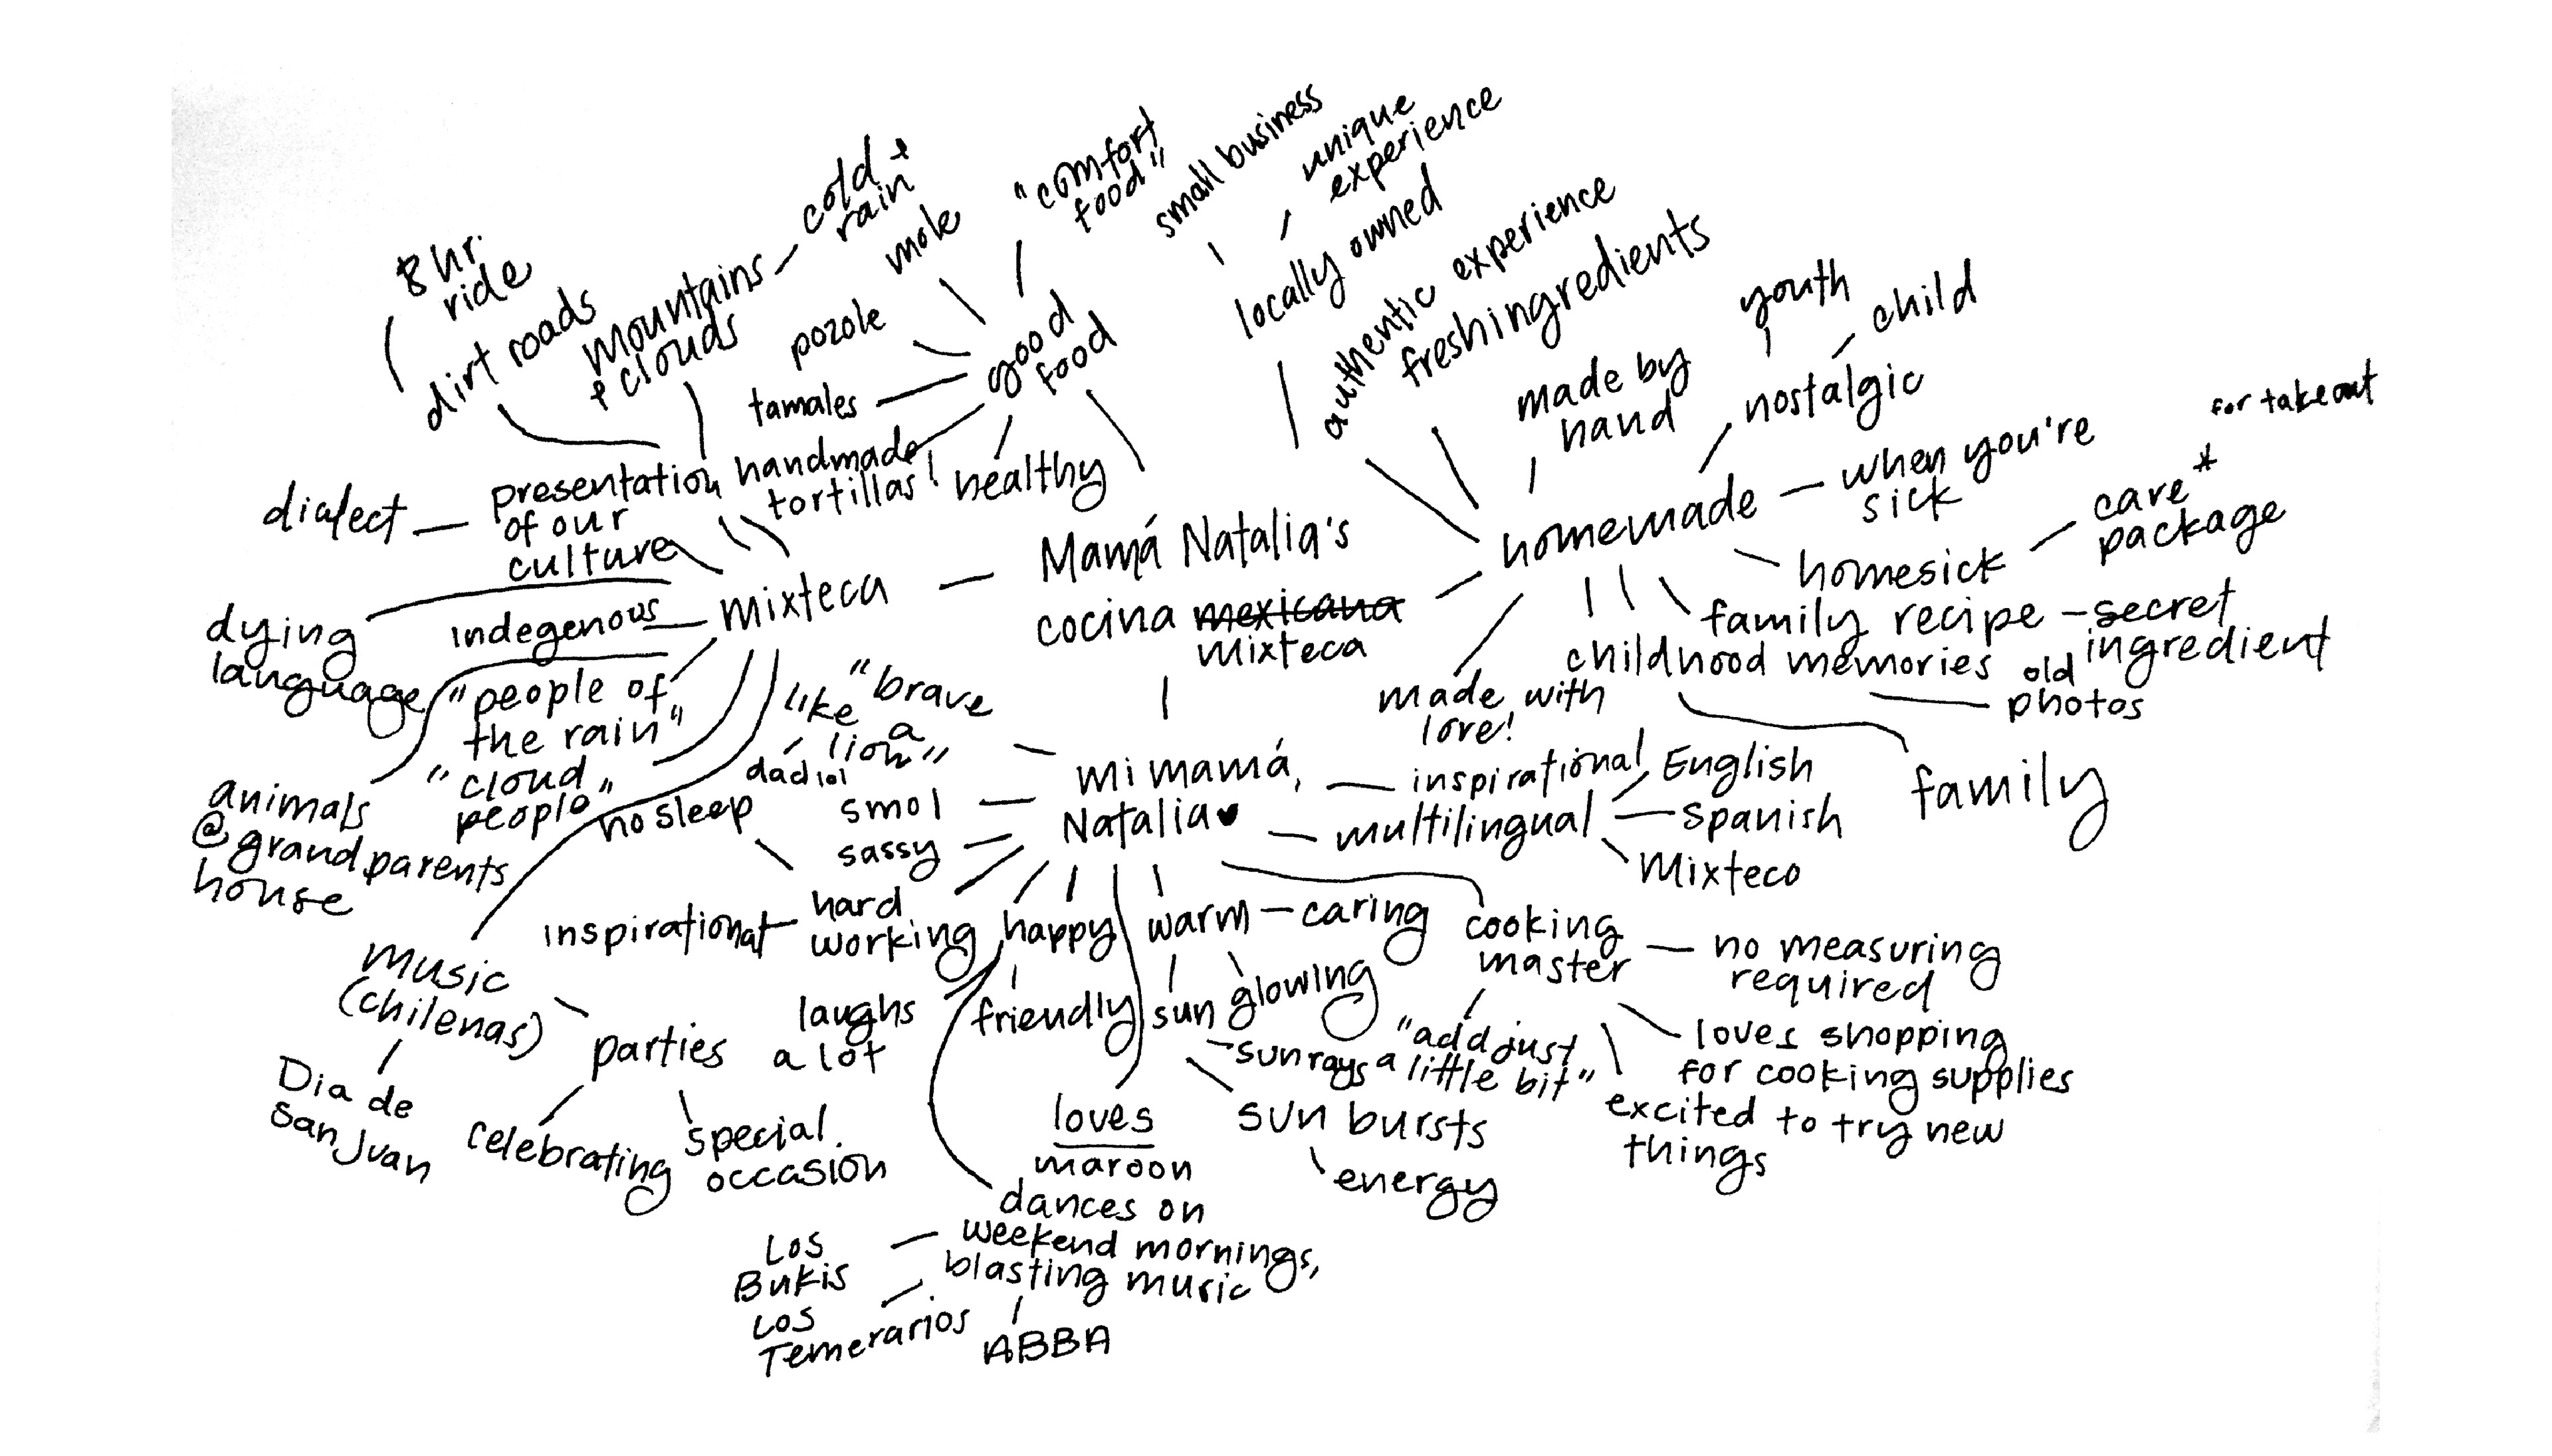 Mamá Natalia's
cocina mexicana
Mixteca
mixteca
presentation
of our
culture
dialect
dirt roads
8 hr.
ride
mountains
& clouds
cold &
rain
dying
language
indegenous
"people of
the rain"
"cloud
people"
animals
@ grandparents
house
music
(chilenas)
Dia de
San Juan
parties
celebrating
special
occasion
good
food
"comfort
food"
mole
pozole
tamales
handmade
tortillas!
healthy
locally owned
small business
unique
experience
homemade
authentic experience
fresh ingredients
made by
hand
nostalgic
youth
child
when you're
sick
homesick
care *
package
for takeout
family recipe
secret
ingredient
childhood memories
old
photos
family
made with
love!
mi mamá,
Natalia
"brave
like a
lion"
smol
sassy
hard
working
no sleep
inspirational
happy
laughs
a lot
friendly
dances on
weekend mornings,
blasting music
Los
Bukis
Los
Temerarios
ABBA
loves
maroon
warm
caring
sun
glowing
sun rays
sun bursts
energy
cooking
master
no measuring
required
"add just
a little bit"
loves shopping
for cooking supplies
excited to try new
things
inspirational
multilingual
English
Spanish
Mixteco